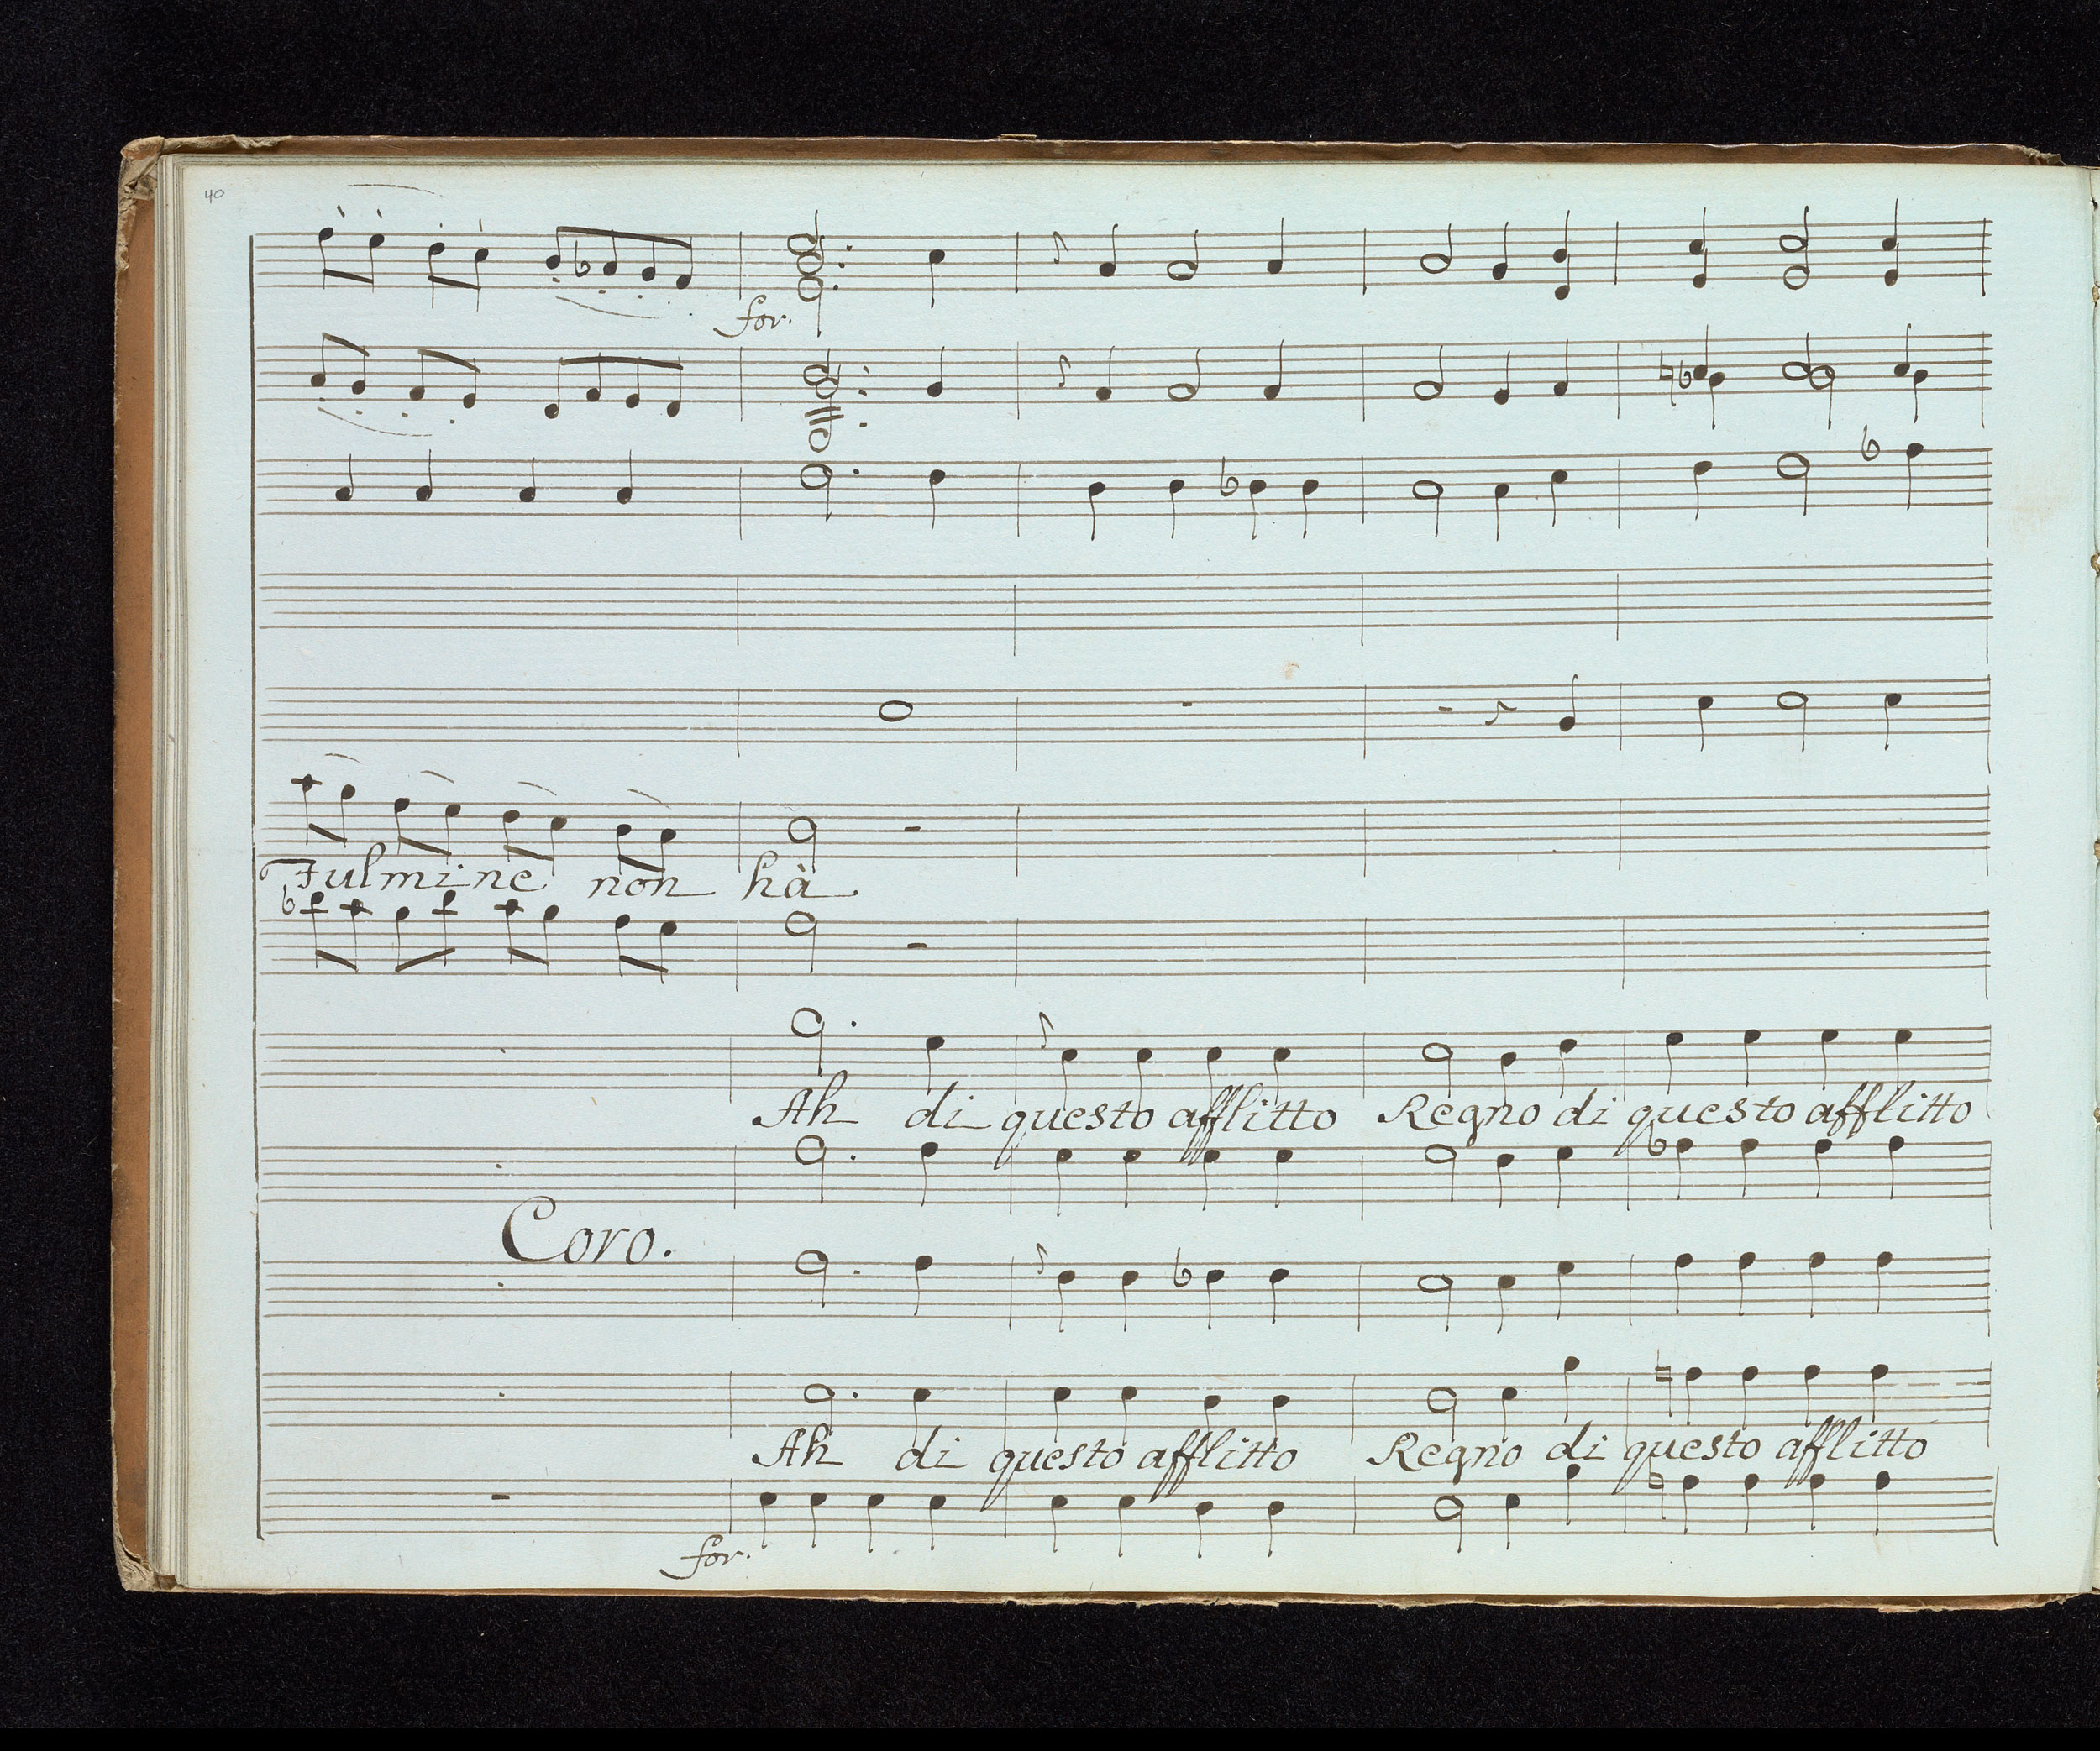 40
for.
Fulmine non hà
Ah di questo afflitto Regno di questo afflitto
Coro.
Ah di questo afflitto Regno di questo afflitto
for.